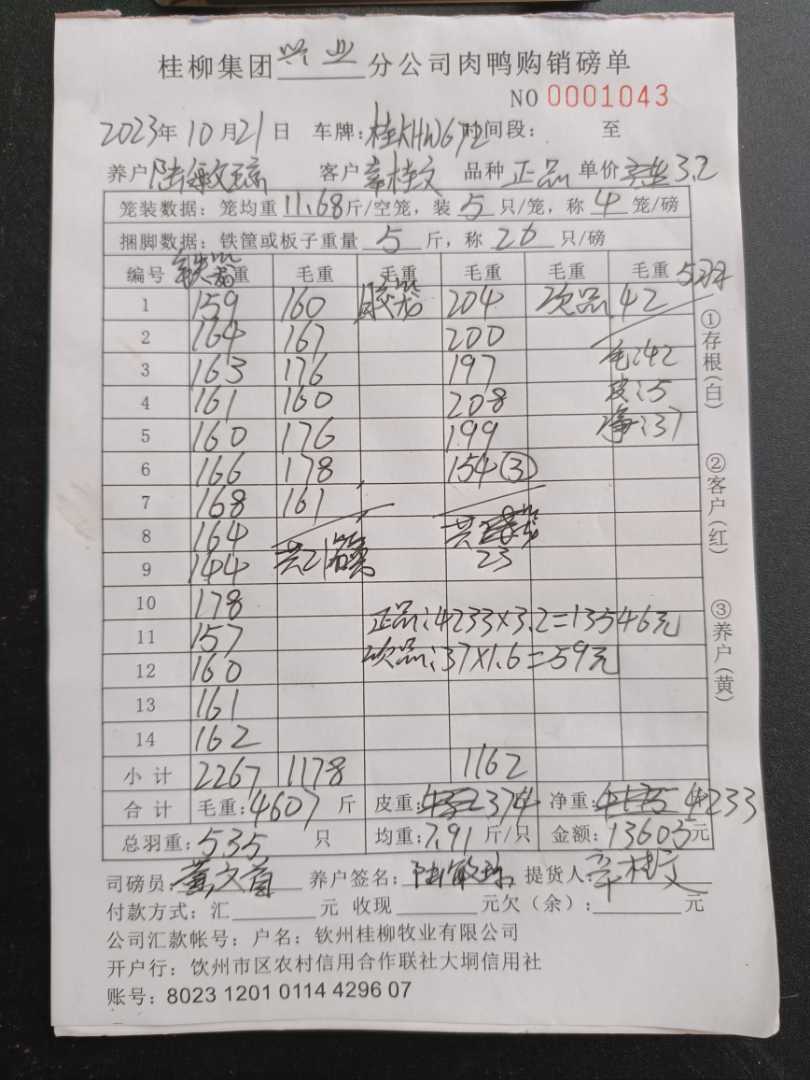 桂柳集团兴业分公司肉鸭购销磅单
NO 0001043
2023年10月21日 车牌:桂KHW672时间段: 至
养户陆敏文琼 客户辜桂文 品种正品 单价3.2
笼装数据:笼均重11.68斤/空笼,装5只/笼,称4笼/磅
捆脚数据:铁筐或板子重量5斤,称26只/磅
编号 铁笼重 毛重 毛重 毛重 毛重 毛重 5羽
1 159 160 胶笼 204 次品 42
2 164 167 200
3 163 176 197 毛:42
4 161 160 208 皮:5
5 160 176 199 净:37
6 166 178 154③
7 168 161
8 164 共21笼 共
9 144 23
10 178
正品:4233×3.2=13546元
11 157
次品:37×1.6=59元
12 160
13 161
14 162
小计 2267 1178 1162
合计 毛重:4607斤 皮重:374 净重:4233
总羽重:535只 均重:7.91斤/只 金额:13605元
司磅员: 黄文首 养户签名: 提货人:辜桂文
付款方式:汇 元 收现 元欠(余): 元
公司汇款帐号:户名:钦州桂柳牧业有限公司
开户行:饮州市区农村信用合作联社大垌信用社
账号:8023 1201 0114 4296 07
①存根(白)
②客户(红)
③养户(黄)